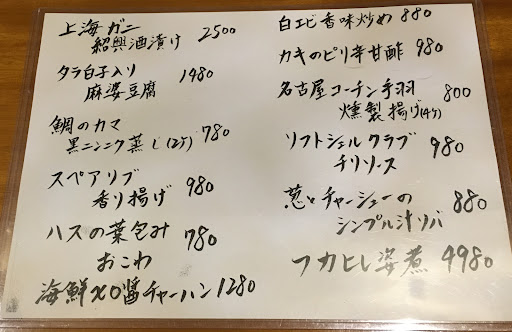 上海ガニ
紹興酒漬け 2500
タラ白子入り
麻婆豆腐 1480
鯛のカマ
黒ニンニク蒸し(2ケ) 780
スペアリブ
香り揚げ 980
ハスの葉包み
おこわ 780
海鮮XO醤チャーハン 1280
白エビ香味炒め 880
カキのピリ辛甘酢 980
名古屋コーチン手羽
燻製揚げ(4ケ) 800
ソフトシェルクラブ
チリソース 980
葱とチャーシューの
シンプル汁ソバ 880
フカヒレ姿煮 4980